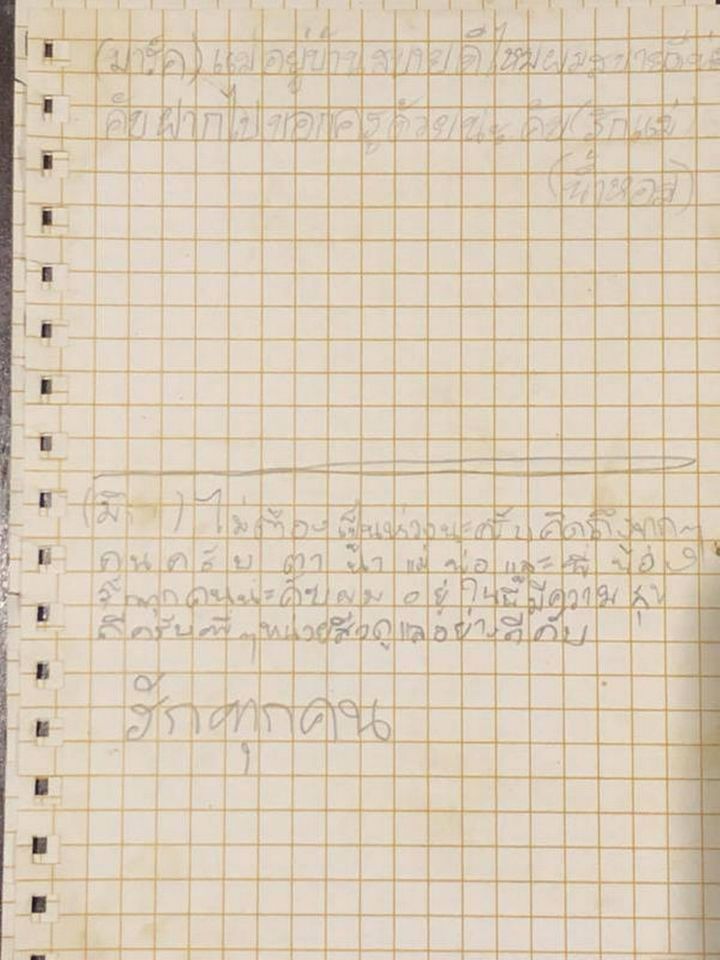 (มาร์ค) แม่อยู่บ้านสบายดีไหมผมสบายดี
คับฝากไปบอกครูด้วยนะคับ(รักแม่)
(น้ำหอม)
(มิ ) ไม่ต้องเป็นห่วงนะครับคิดถึงทุกๆ
คนครับ ตา น้า แม่ พ่อ และ พี่ น้อง
รักทุกคนนะคับผม อยู่ในนี้มีความสุข
ดีครับพี่ๆหน่วยซีวดูแลอย่างดีคับ
รักทุกคน